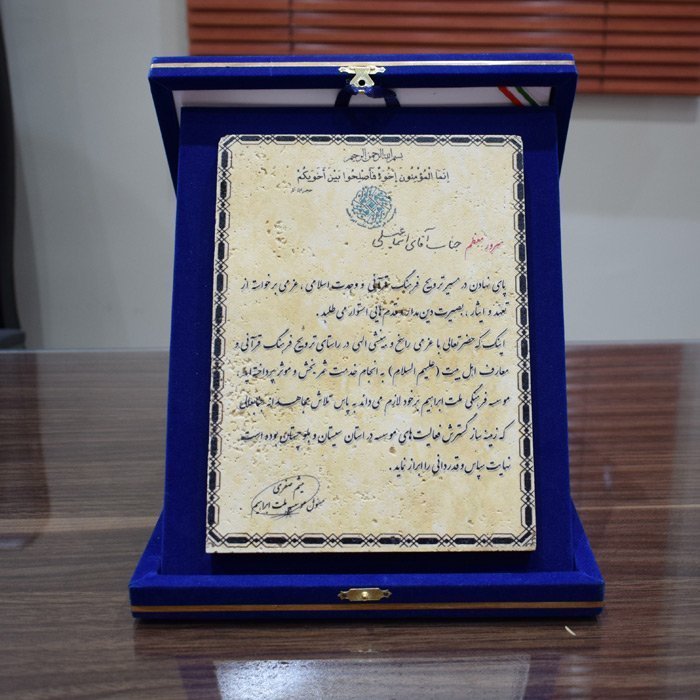 بسم الله الرحمن الرحیم
اِنَّمَا الْمُؤْمِنُونَ اِخْوَةٌ فَاَصْلِحُوا بَیْنَ اَخَوَیْکُمْ
سرور معظم جناب آقای اسماعیلی
پای نهادن در مسیر ترویج فرهنگ قرآنی و وحدت اسلامی ، عزمی برخاسته از
تعهد و ایثار ، بصیرت دین مدار و قدم هایی استوار می طلبد .
اینک که حضرتعالی با عزمی راسخ و بینشی الهی در راستای ترویج فرهنگ قرآنی و
معارف اهل بیت (علیهم السلام) به انجام خدمت ثمربخش و موثر پرداخته اید ،
موسسه فرهنگی ملت ابراهیم بر خود لازم می داند به پاس تلاش مجاهدانه جنابعالی
که زمینه ساز گسترش فعالیت های موسسه در استان سیستان و بلوچستان بوده است
نهایت سپاس و قدردانی را ابراز نماید .
میثم صفری
مسئول موسسه ملت ابراهیم